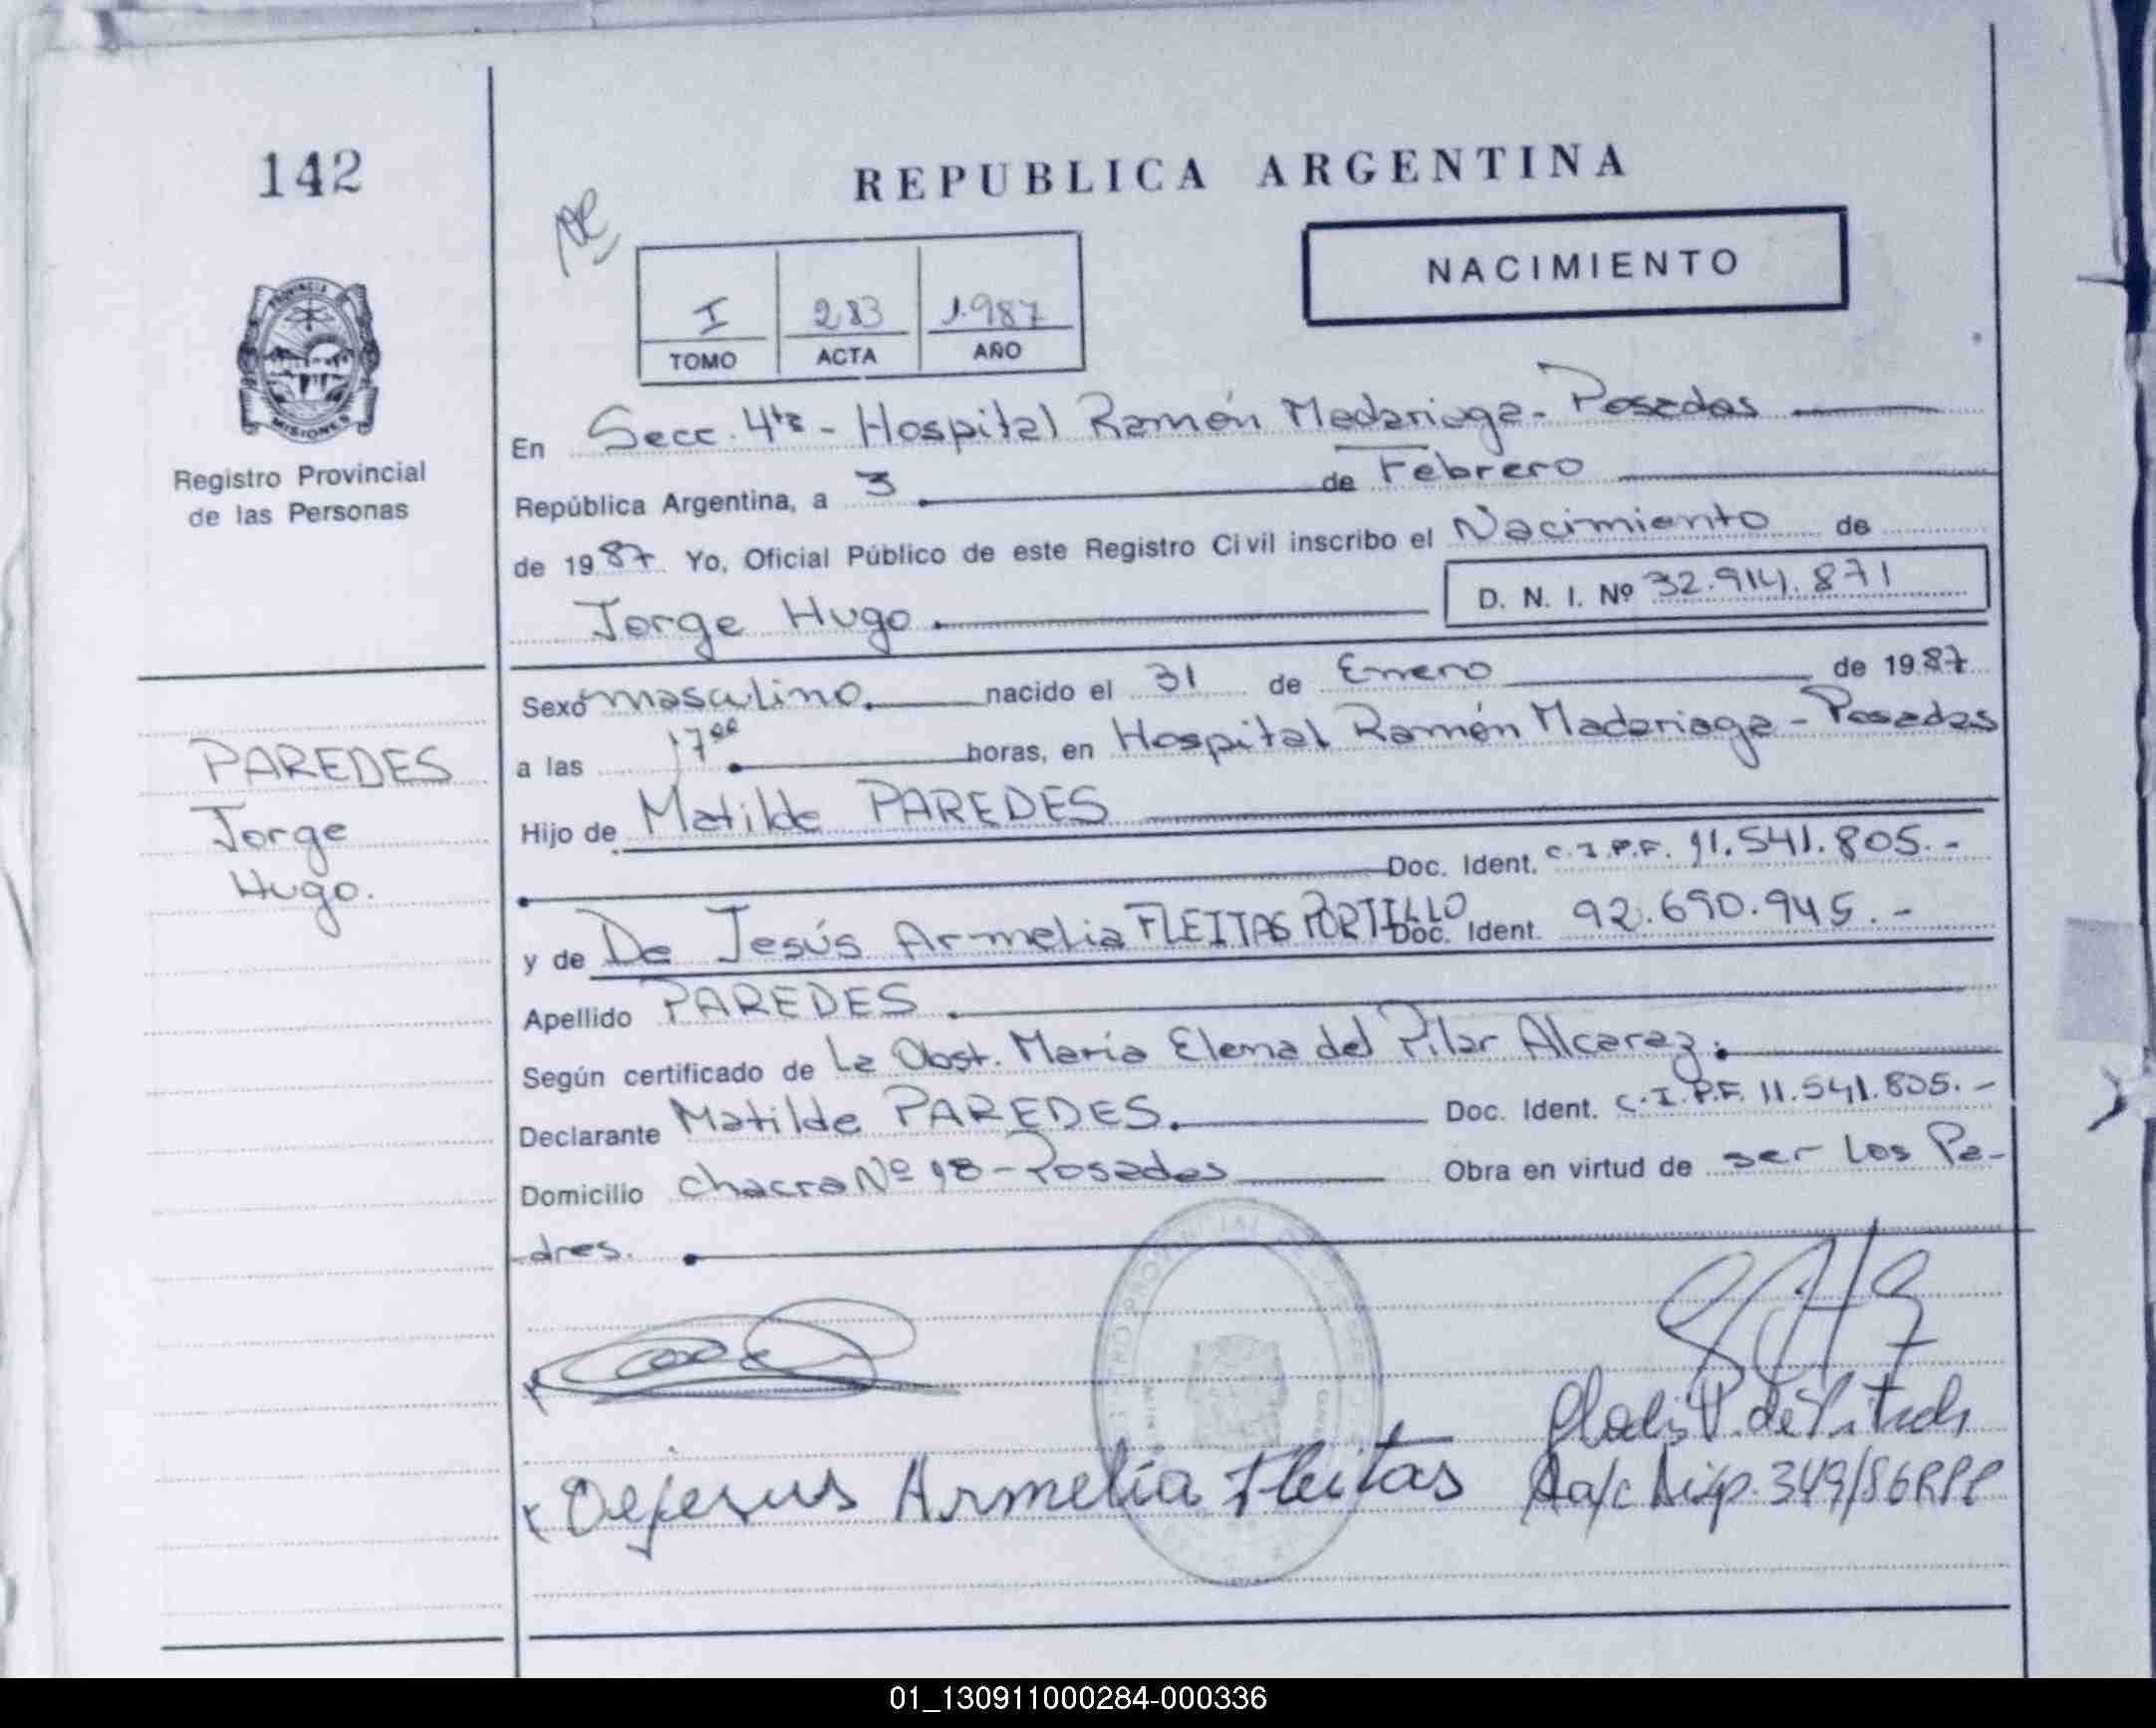 142
REPUBLICA ARGENTINA
NACIMIENTO
I 283 1.987
TOMO ACTA AÑO
PROVINCIA
MISIONES
Registro Provincial
de las Personas
En Secc. 4ta - Hospital Ramón Madariaga - Posadas
República Argentina, a 3 de Febrero
de 1987 Yo, Oficial Público de este Registro Civil inscribo el Nacimiento de
D. N. I. Nº 32.914.871
Jorge Hugo.
Sexo masculino. nacido el 31 de Enero de 1987
a las 17 00 horas, en Hospital Ramón Madariaga - Posadas
PAREDES
Jorge
Hugo.
Hijo de Matilde PAREDES
Doc. Ident. C.I.P.F. 11.541.805.-
y de De Jesús Armelia FLEITAS PORTILLO Doc. Ident. 92.690.945.-
Apellido PAREDES.
Según certificado de La Obst. María Elena del Pilar Alcaraz.
Declarante Matilde PAREDES. Doc. Ident. C.I.P.F. 11.541.805.-
Domicilio chacra Nº 98 - Posadas Obra en virtud de ser Los Pa-
dres.
Dejesus Armelia Fleitas
a/c Disp. 349/86 RPP
01_130911000284-000336